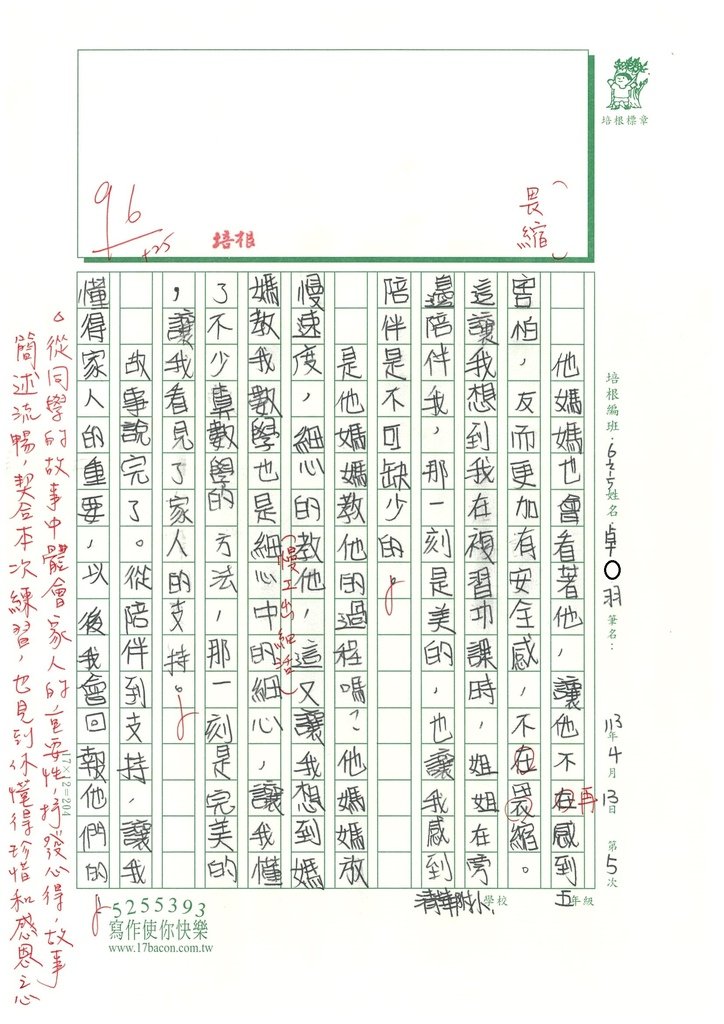 培根標章
培根編班：6先5姓名：卓〇羽 筆名：
113年4月13日 第5次
（畏縮）
96
+25
培根
他媽媽也會看著他，讓他不在感到
再
害怕，友而更加有安全感，不在畏縮。
這讓我想到我在複習功課時，姐姐在旁
邊陪伴我，那一刻是美的，也讓我感到
陪伴是不可缺少的
是他媽媽教他的過程嗎？他媽媽放
慢速度，細心的教他，這又讓我想到媽
（慢工出細活）
媽教我數學也是細心中的細心，讓我懂
了不少數學的方法，那一刻是完美的
，讓我看見了家人的支持。
故事說完了。從陪伴到支持，讓我
懂得家人的重要，以後我會回報他們的
17×12=204
清華附小學校 五年級
。從同學的故事中體會家人的重要性，抒發心得，故事
簡述流暢，契合本次練習，也見到你懂得珍惜和感恩之心
5255393
寫作使你快樂
www.17bacon.com.tw